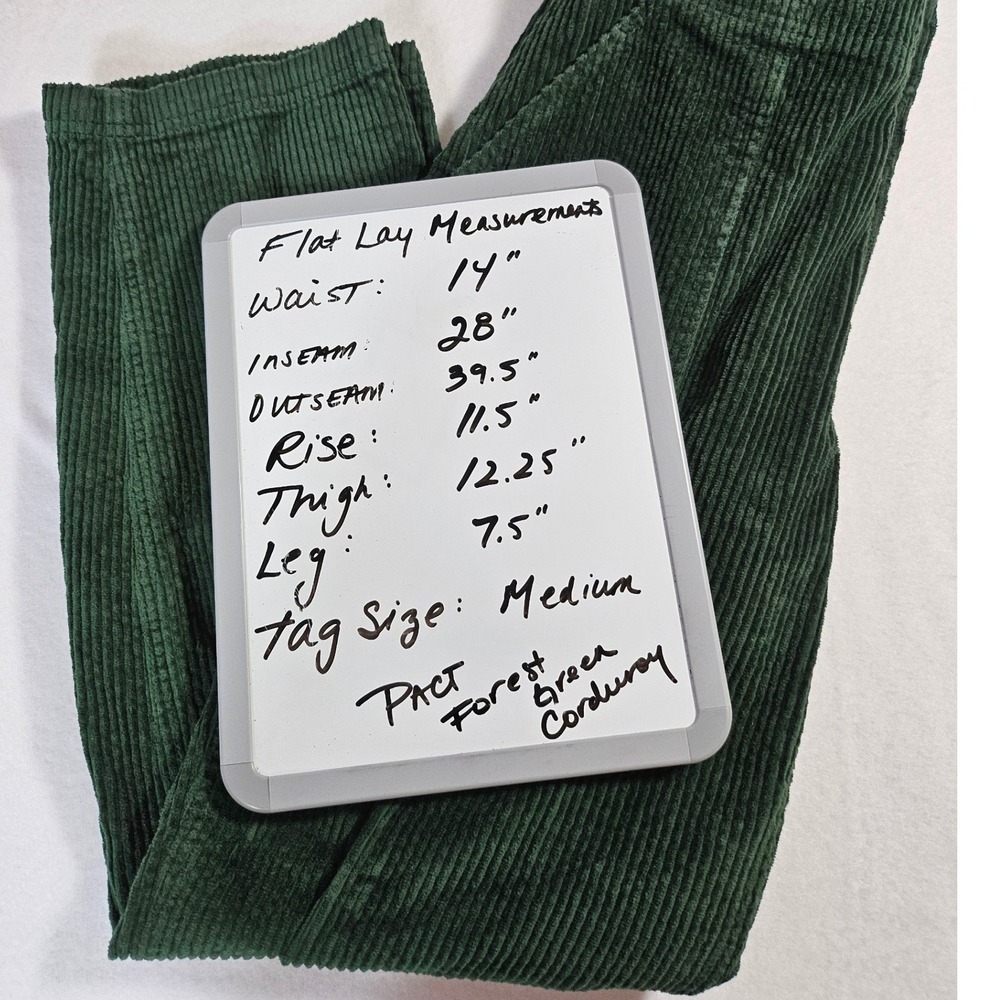 Flat Lay Measurements
Waist: 14"
INSEAM: 28"
OUTSEAM: 39.5"
Rise: 11.5"
Thigh: 12.25"
Leg: 7.5"
Tag Size: Medium
PACT Forest Green Corduroy